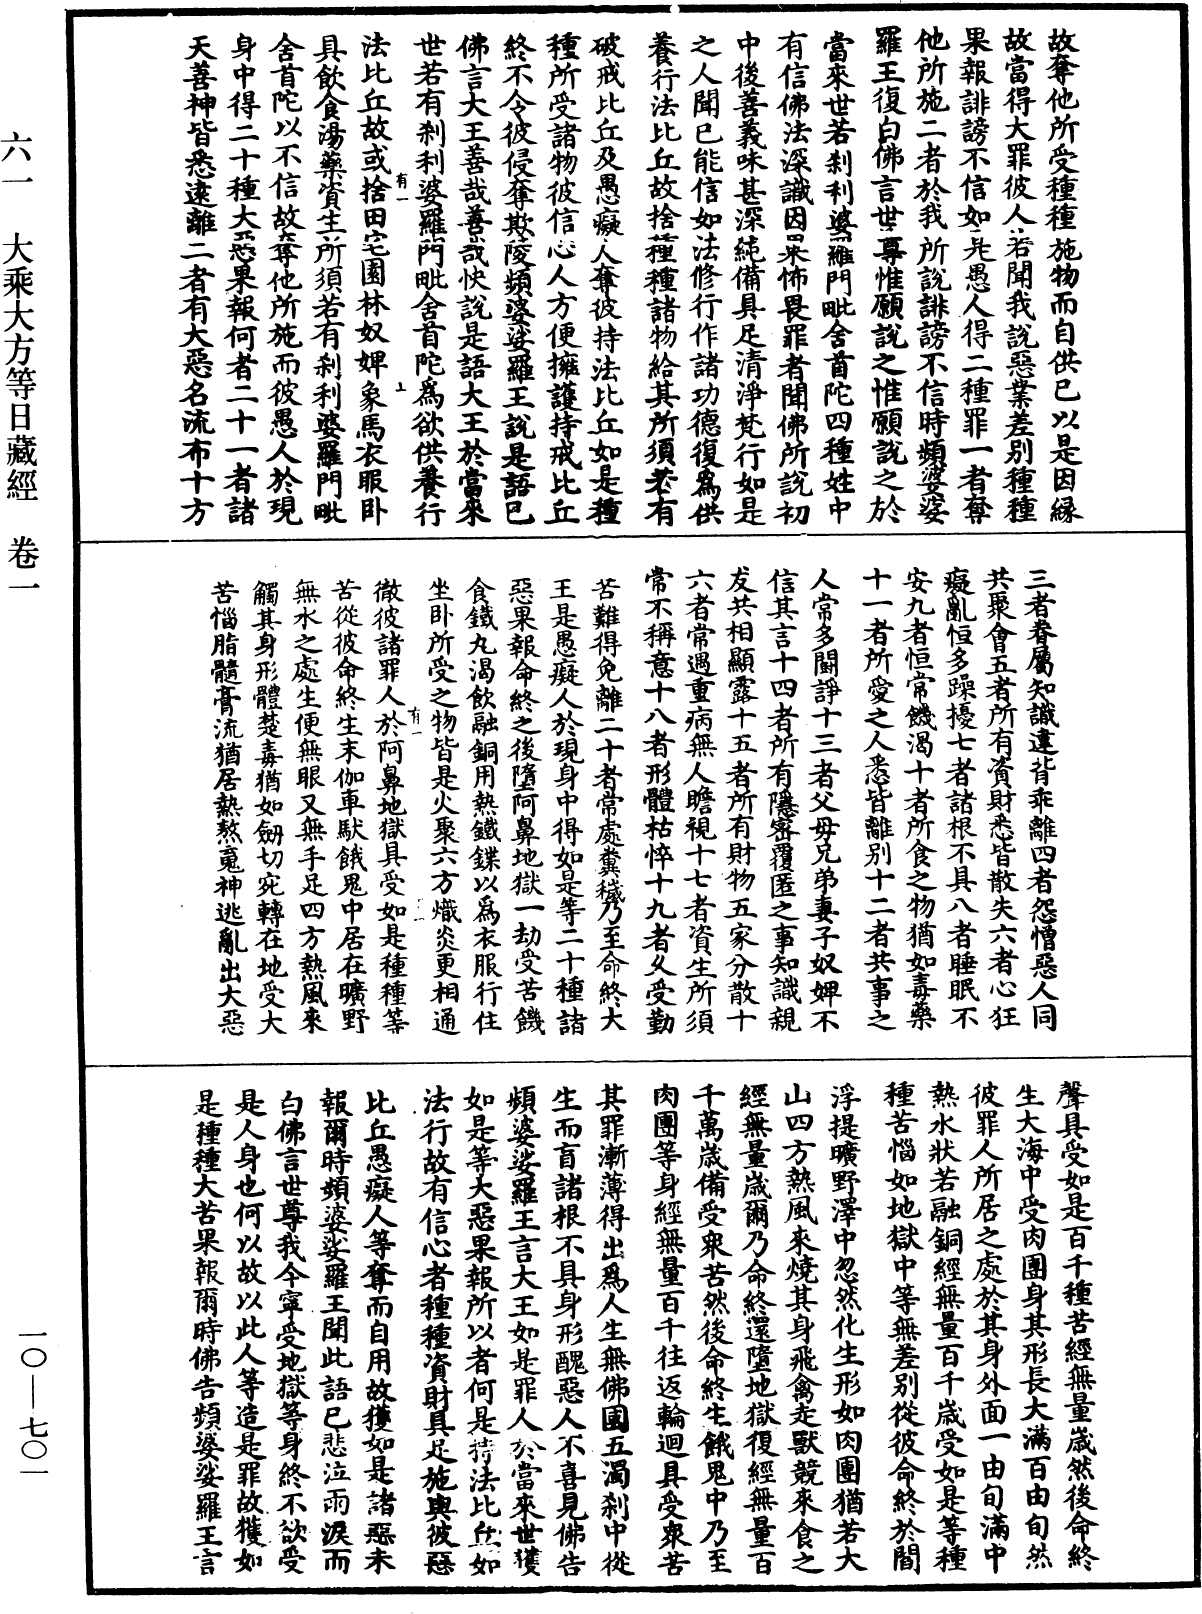 故奪他所受種種施物而自供已以是因緣
故當得大罪彼人若聞我說惡業差別種種
果報誹謗不信如是愚人得二種罪一者奪
他所施二者於我所說誹謗不信時頻婆娑
羅王復白佛言世尊惟願說之惟願說之於
當來世若刹利婆羅門毗舍首陀四種姓中
有信佛法深識因果怖畏罪者聞佛所說初
中後善義味甚深純備具足清淨梵行如是
之人聞已能信如法修行作諸功德復為供
養行法比丘故捨種種諸物給其所須若有
破戒比丘及愚癡人奪彼持法比丘如是種
種所受諸物彼信心人方便擁護持戒比丘
終不令彼侵奪欺陵頻婆娑羅王說是語已
佛言大王善哉善哉快說是語大王於當來
世若有刹利婆羅門毗舍首陀為欲供養行
法比丘故或捨田宅園林奴婢象馬衣服臥
具飲食湯藥資生所須若有刹利婆羅門毗
舍首陀以不信故奪他所施而彼愚人於現
身中得二十種大惡果報何者二十一者諸
天善神皆悉遠離二者有大惡名流布十方
三者眷屬知識違背乖離四者怨憎惡人同
共聚會五者所有資財悉皆散失六者心狂
癡亂恒多躁擾七者諸根不具八者睡眠不
安九者恒常饑渴十者所食之物猶如毒藥
十一者所愛之人悉皆離別十二者共事之
人常多鬪諍十三者父母兄弟妻子奴婢不
信其言十四者所有隱密覆匿之事知識親
友共相顯露十五者所有財物五家分散十
六者常遇重病無人瞻視十七者資生所須
常不稱意十八者形體枯悴十九者久受勤
苦難得免離二十者常處糞穢乃至命終大
王是愚癡人於現身中得如是等二十種諸
惡果報命終之後墮阿鼻地獄一劫受苦饑
食鐵丸渴飲融銅用熱鐵鍱以為衣服行住
坐臥所受之物皆是火聚六方熾炎更相通
徹彼諸罪人於阿鼻地獄具受如是種種等
苦從彼命終生末伽車馱餓鬼中居在曠野
無水之處生便無眼又無手足四方熱風來
觸其身形體楚毒猶如劒切宛轉在地受大
苦惱脂髓膏流猶居熱熬䰟神逃亂出大惡
聲具受如是百千種苦經無量歲然後命終
生大海中受肉團身其形長大滿百由旬然
彼罪人所居之處於其身外面一由旬滿中
熱水狀若融銅經無量百千歲受如是等種
種苦惱如地獄中等無差別從彼命終於閻
浮提曠野澤中忽然化生形如肉團猶若大
山四方熱風來燒其身飛禽走獸競來食之
經無量歲爾乃命終還墮地獄復經無量百
千萬歲備受衆苦然後命終生餓鬼中乃至
肉團等身經無量百千往返輪迴具受衆苦
其罪漸薄得出為人生無佛國五濁刹中從
生而盲諸根不具身形醜惡人不喜見佛告
頻婆娑羅王言大王如是罪人於當來世獲
如是等大惡果報所以者何是持法比丘如
法行故有信心者種種資財具足施與彼惡
比丘愚癡人等奪而自用故獲如是諸惡果
報爾時頻婆娑羅王聞此語已悲泣雨淚而
白佛言世尊我今寧受地獄等身終不欲受
是人身也何以故以此人等造是罪故獲如
是種種大苦果報爾時佛告頻婆娑羅王言
六一 大乘大方等日藏經 卷一
一〇—七〇一